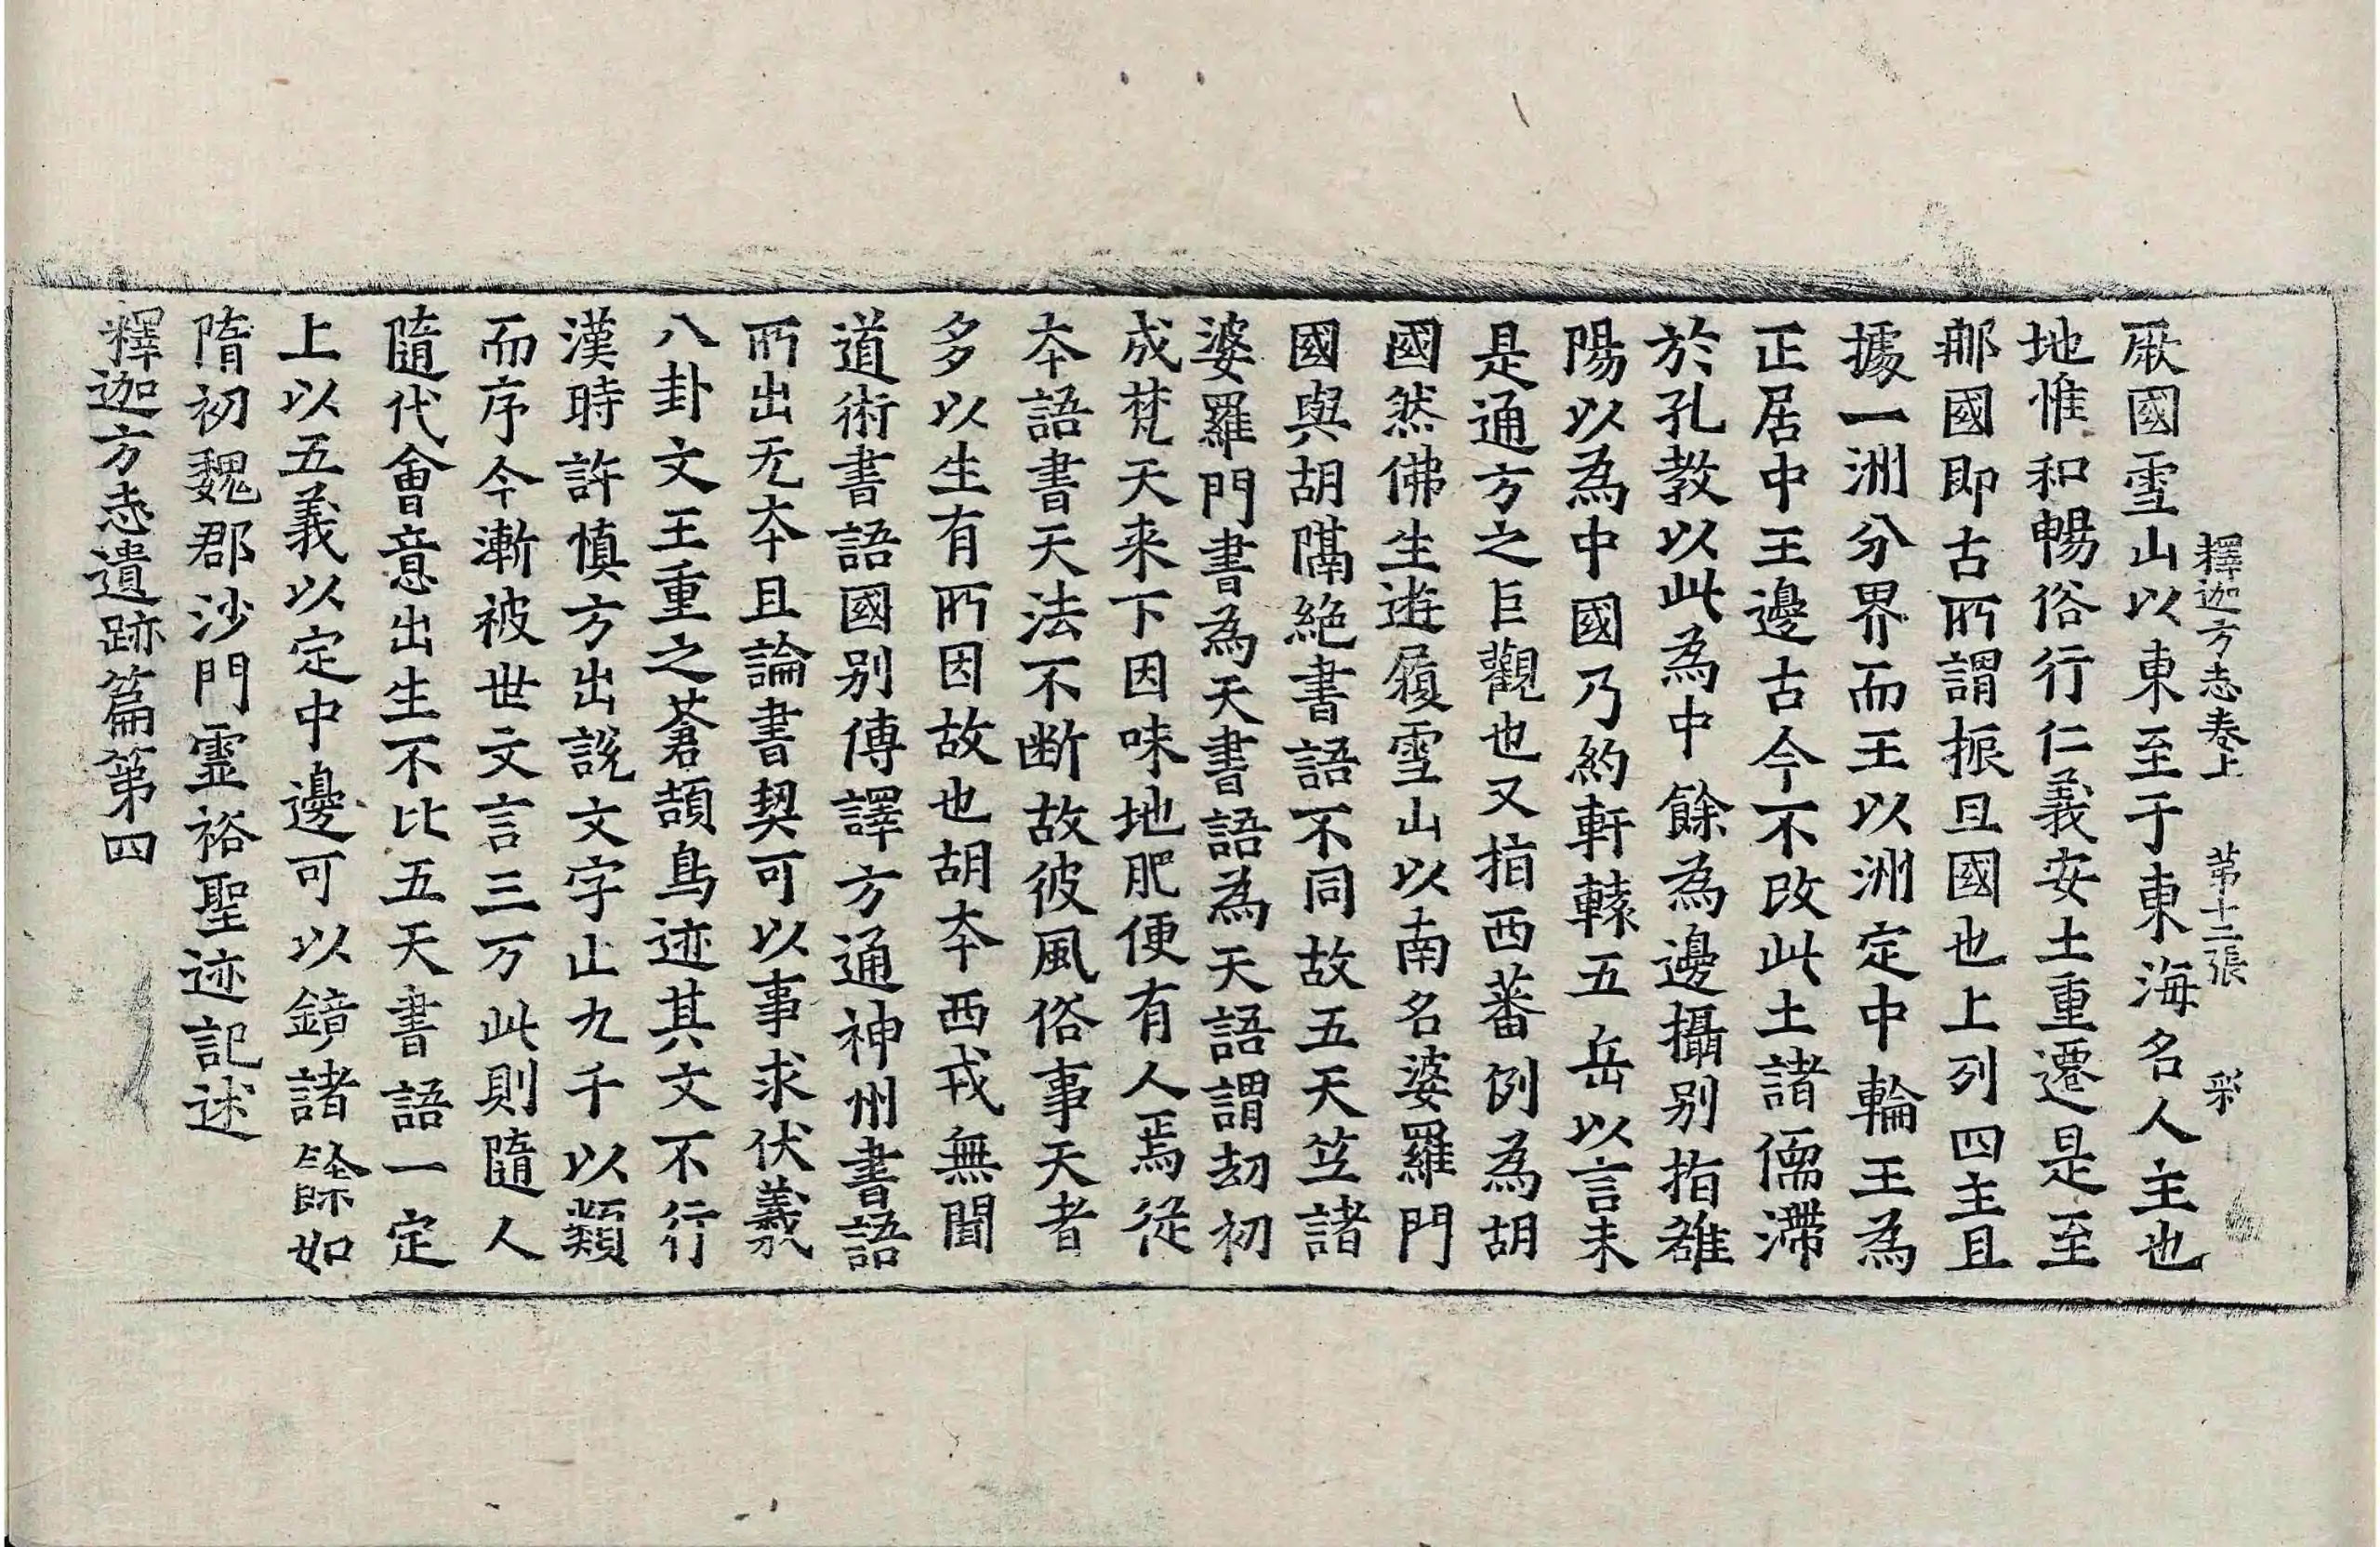 釋迦方志卷上 第十二張 彩
厥國雪山以東至于東海名人主也
地惟和暢俗行仁義安土重遷是至
那國即古所謂振旦國也上列四主且
據一洲分界而王以洲定中輪王為
正居中王邊古今不改此土諸儒滯
於孔教以此為中餘為邊攝别指雒
陽以為中國乃約軒轅五岳以言未
是通方之巨觀也又指西蕃例為胡
國然佛生遊履雪山以南名婆羅門
國與胡隔絶書語不同故五天竺諸
婆羅門書為天書語為天語謂劫初
成梵天来下因味地肥便有人焉從
本語書天法不断故彼風俗事天者
多以生有所因故也胡本西戎無聞
道術書語國别傳譯方通神州書語
所出无本且論書契可以事求伏羲
八卦文王重之蒼頡鳥迹其文不行
漢時許慎方出説文字止九千以類
而序今漸被世文言三万此則隨人
隨代會意出生不比五天書語一定
上以五義以定中邊可以鏡諸餘如
隋初魏郡沙門靈裕聖迹記述
釋迦方志遺跡篇第四